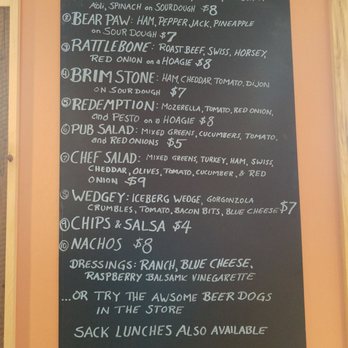 AOLI, SPINACH ON SOURDOUGH $8
② BEAR PAW: HAM, PEPPER JACK, PINEAPPLE
ON SOUR DOUGH $7
③ RATTLEBONE: ROAST BEEF, SWISS, HORSEY,
RED ONION on a HOAGIE $8
④ BRIMSTONE: HAM, CHEDDAR, TOMATO, DIJON
ON SOURDOUGH $7
⑤ REDEMPTION: MOZERELLA, TOMATO, RED ONION,
and PESTO on a HOAGIE $8
⑥ PUB SALAD: MIXED GREENS, CUCUMBERS, TOMATO,
and RED ONIONS $5
⑦ CHEF SALAD: MIXED GREENS, TURKEY, HAM, SWISS,
CHEDDAR, OLIVES, TOMATO, CUCUMBER, & RED
ONION $9
WEDGEY: ICEBERG WEDGE, GORGONZOLA
CRUMBLES, TOMATO, BACON BITS, BLUE CHEESE $7
⑨ CHIPS & SALSA $4
⑩ NACHOS $8
DRESSINGS: RANCH, BLUE CHEESE,
RASPBERRY BALSAMIC VINEGARETTE
...OR TRY THE AWSOME BEER DOGS
IN THE STORE
SACK LUNCHES ALSO AVAILABLE